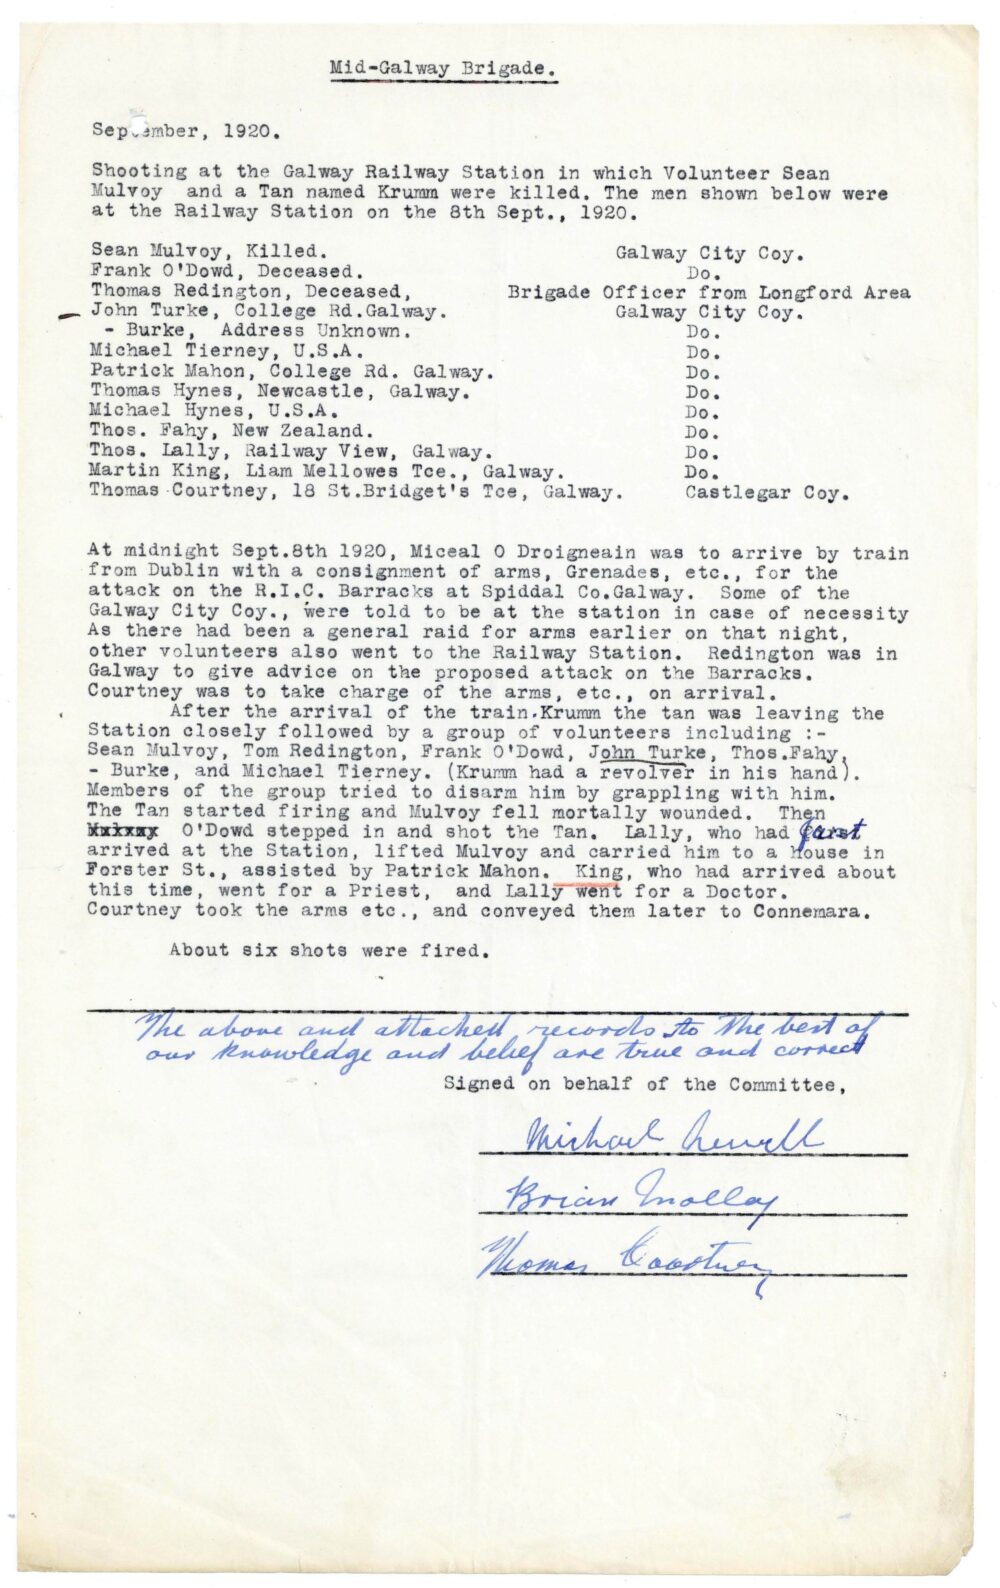 Mid-Galway Brigade.
September, 1920.
Shooting at the Galway Railway Station in which Volunteer Sean
Mulvoy and a Tan named Krumm were killed. The men shown below were
at the Railway Station on the 8th Sept., 1920.
Sean Mulvoy, Killed. Galway City Coy.
Frank O'Dowd, Deceased. Do.
Thomas Redington, Deceased, Brigade Officer from Longford Area
John Turke, College Rd.Galway. Galway City Coy.
- Burke, Address Unknown. Do.
Michael Tierney, U.S.A. Do.
Patrick Mahon, College Rd. Galway. Do.
Thomas Hynes, Newcastle, Galway. Do.
Michael Hynes, U.S.A. Do.
Thos. Fahy, New Zealand. Do.
Thos. Lally, Railway View, Galway. Do.
Martin King, Liam Mellowes Tce., Galway. Do.
Thomas Courtney, 18 St.Bridget's Tce, Galway. Castlegar Coy.
At midnight Sept.8th 1920, Miceal O Droigneain was to arrive by train
from Dublin with a consignment of arms, Grenades, etc., for the
attack on the R.I.C. Barracks at Spiddal Co.Galway. Some of the
Galway City Coy., were told to be at the station in case of necessity
As there had been a general raid for arms earlier on that night,
other volunteers also went to the Railway Station. Redington was in
Galway to give advice on the proposed attack on the Barracks.
Courtney was to take charge of the arms, etc., on arrival.
After the arrival of the train.Krumm the tan was leaving the
Station closely followed by a group of volunteers including :-
Sean Mulvoy, Tom Redington, Frank O'Dowd, John Turke, Thos.Fahy,
- Burke, and Michael Tierney. (Krumm had a revolver in his hand).
Members of the group tried to disarm him by grappling with him.
The Tan started firing and Mulvoy fell mortally wounded. Then
O'Dowd stepped in and shot the Tan. Lally, who had just
arrived at the Station, lifted Mulvoy and carried him to a house in
Forster St., assisted by Patrick Mahon. King, who had arrived about
this time, went for a Priest, and Lally went for a Doctor.
Courtney took the arms etc., and conveyed them later to Connemara.
About six shots were fired.
The above and attached records to the best of
our knowledge and belief are true and correct
Signed on behalf of the Committee,
Michael Newell
Brian Molloy
Thomas Courtney